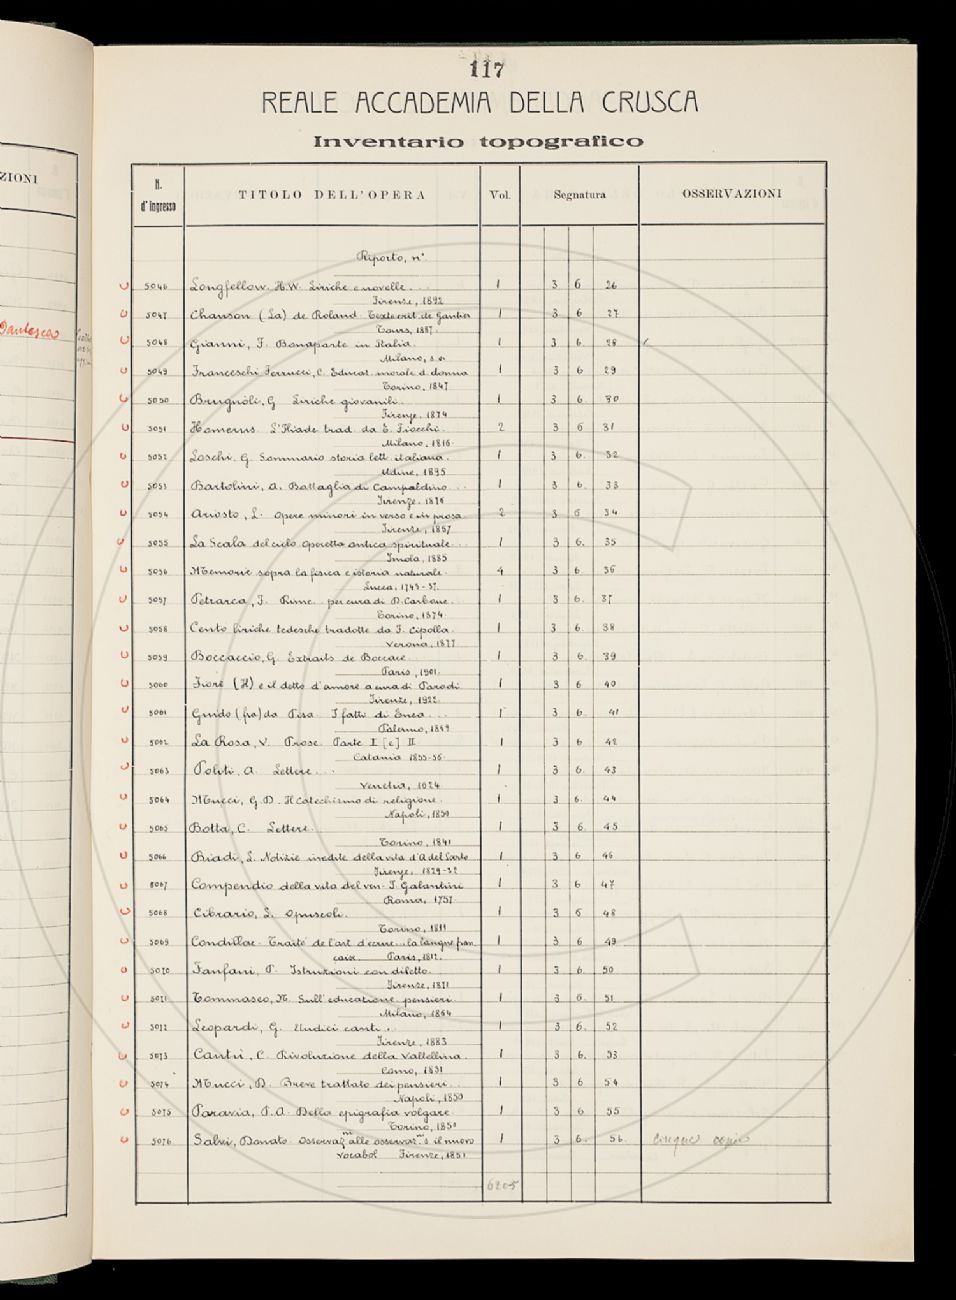 ZIONI
Dantesca
117
REALE ACCADEMIA DELLA CRUSCA
Inventario topografico
N. d'ingresso TITOLO DELL'OPERA Vol. Segnatura OSSERVAZIONI
Riporto, n°.
5046 Longfellow. H.W. Liriche e novelle. . . 1 3 6 26
Firenze, 1892
5047 Chanson (La) de Roland. Texte crit. de Gautier 1 3 6 27
Tours, 1887.
5048 Gianni, F. Bonaparte in Italia. 1 3 6. 28
Milano, s.a.
5049 Franceschi Ferrucci, C. Educaz. morale d. donna 1 3 6 29
Torino, 1847
5050 Brugnòli, G. Liriche giovanili. 1 3 6. 30
Firenze, 1874
5051 Homerus. L'Iliade trad. da E. Fiocchi. 2 3 6 31
Milano, 1816.
5052 Loschi. G. Sommario storia lett. italiana. 1 3 6. 32
Udine, 1895
5053 Bartolini, A. Battaglia di Campaldino . . . 1 3 6. 33
Firenze. 1876
5054 Ariosto, L. Opere minori in verso e in prosa. 2 3 6 34
Firenze, 1857
5055 La Scala del cielo operetta antica spirituale . . . 1 3 6. 35
Imola, 1885
5056 Memorie sopra la fisica e istoria naturale. 4 3 6. 36
Lucca, 1743-57.
5057 Petrarca, F. Rime. per cura di D. Carbone. 1 3 6. 37
Torino, 1874
5058 Cento liriche tedesche tradotte da F. Cipolla. 1 3 6. 38
Verona, 1877
5059 Boccaccio, G. Extraits de Boccace. 1 3 6. 39
Paris, 1901.
5060 Fiore (Il) e il detto d'amore a cura di Parodi 1 3 6 40
Firenze, 1922.
5061 Guido (fra) da Pisa. I fatti di Enea . . . 1 3 6. 41
Palermo, 1849
5062 La Rosa, V. Prose. Parte I [e] II 1 3 6 42
Catania 1855-56.
5063 Politi, A. Lettere . . . 1 3 6. 43
Venetia, 1624
5064 Mucci, G.D. Il Catechismo di religione. 1 3 6. 44
Napoli, 1850
5065 Botta, C. Lettere. 1 3 6. 45
Torino, 1841
5066 Biadi, L. Notizie inedite della vita d'A del Sarto 1 3 6 46
Firenze, 1829-32
5067 Compendio della vita del ven. I. Galantini 1 3 6 47
Roma, 1757
5068 Cibrario, L. Opuscoli. 1 3 6 48
Torino, 1841
5069 Condillac. Traité de l'art d'écrire . . . la langue fran. 1 3 6 49
caise Paris, 1812.
5070 Fanfani, P. Istruzioni con diletto. 1 3 6. 50
Firenze, 1871
5071 Tommaseo, N. Sull'educazione. pensieri. 1 3 6. 51
Milano, 1864
5072 Leopardi, G. Undici canti . . 1 3 6. 52
Firenze, 1883
5073 Cantù, C. Rivoluzione della Valtellina. 1 3 6. 53
Como, 1831
5074 Mucci, D. Breve trattato dei pensieri . . . 1 3 6 54
Napoli, 1850
5075 Paravia, P.A. Della epigrafia volgare. 1 3 6 55
Torino, 1850
5076 Salvi, Donato. Osservaz.ni alle osservaz.ni s. il nuovo 1 3 6. 56. cinque copie
vocabol. Firenze, 1851
6205